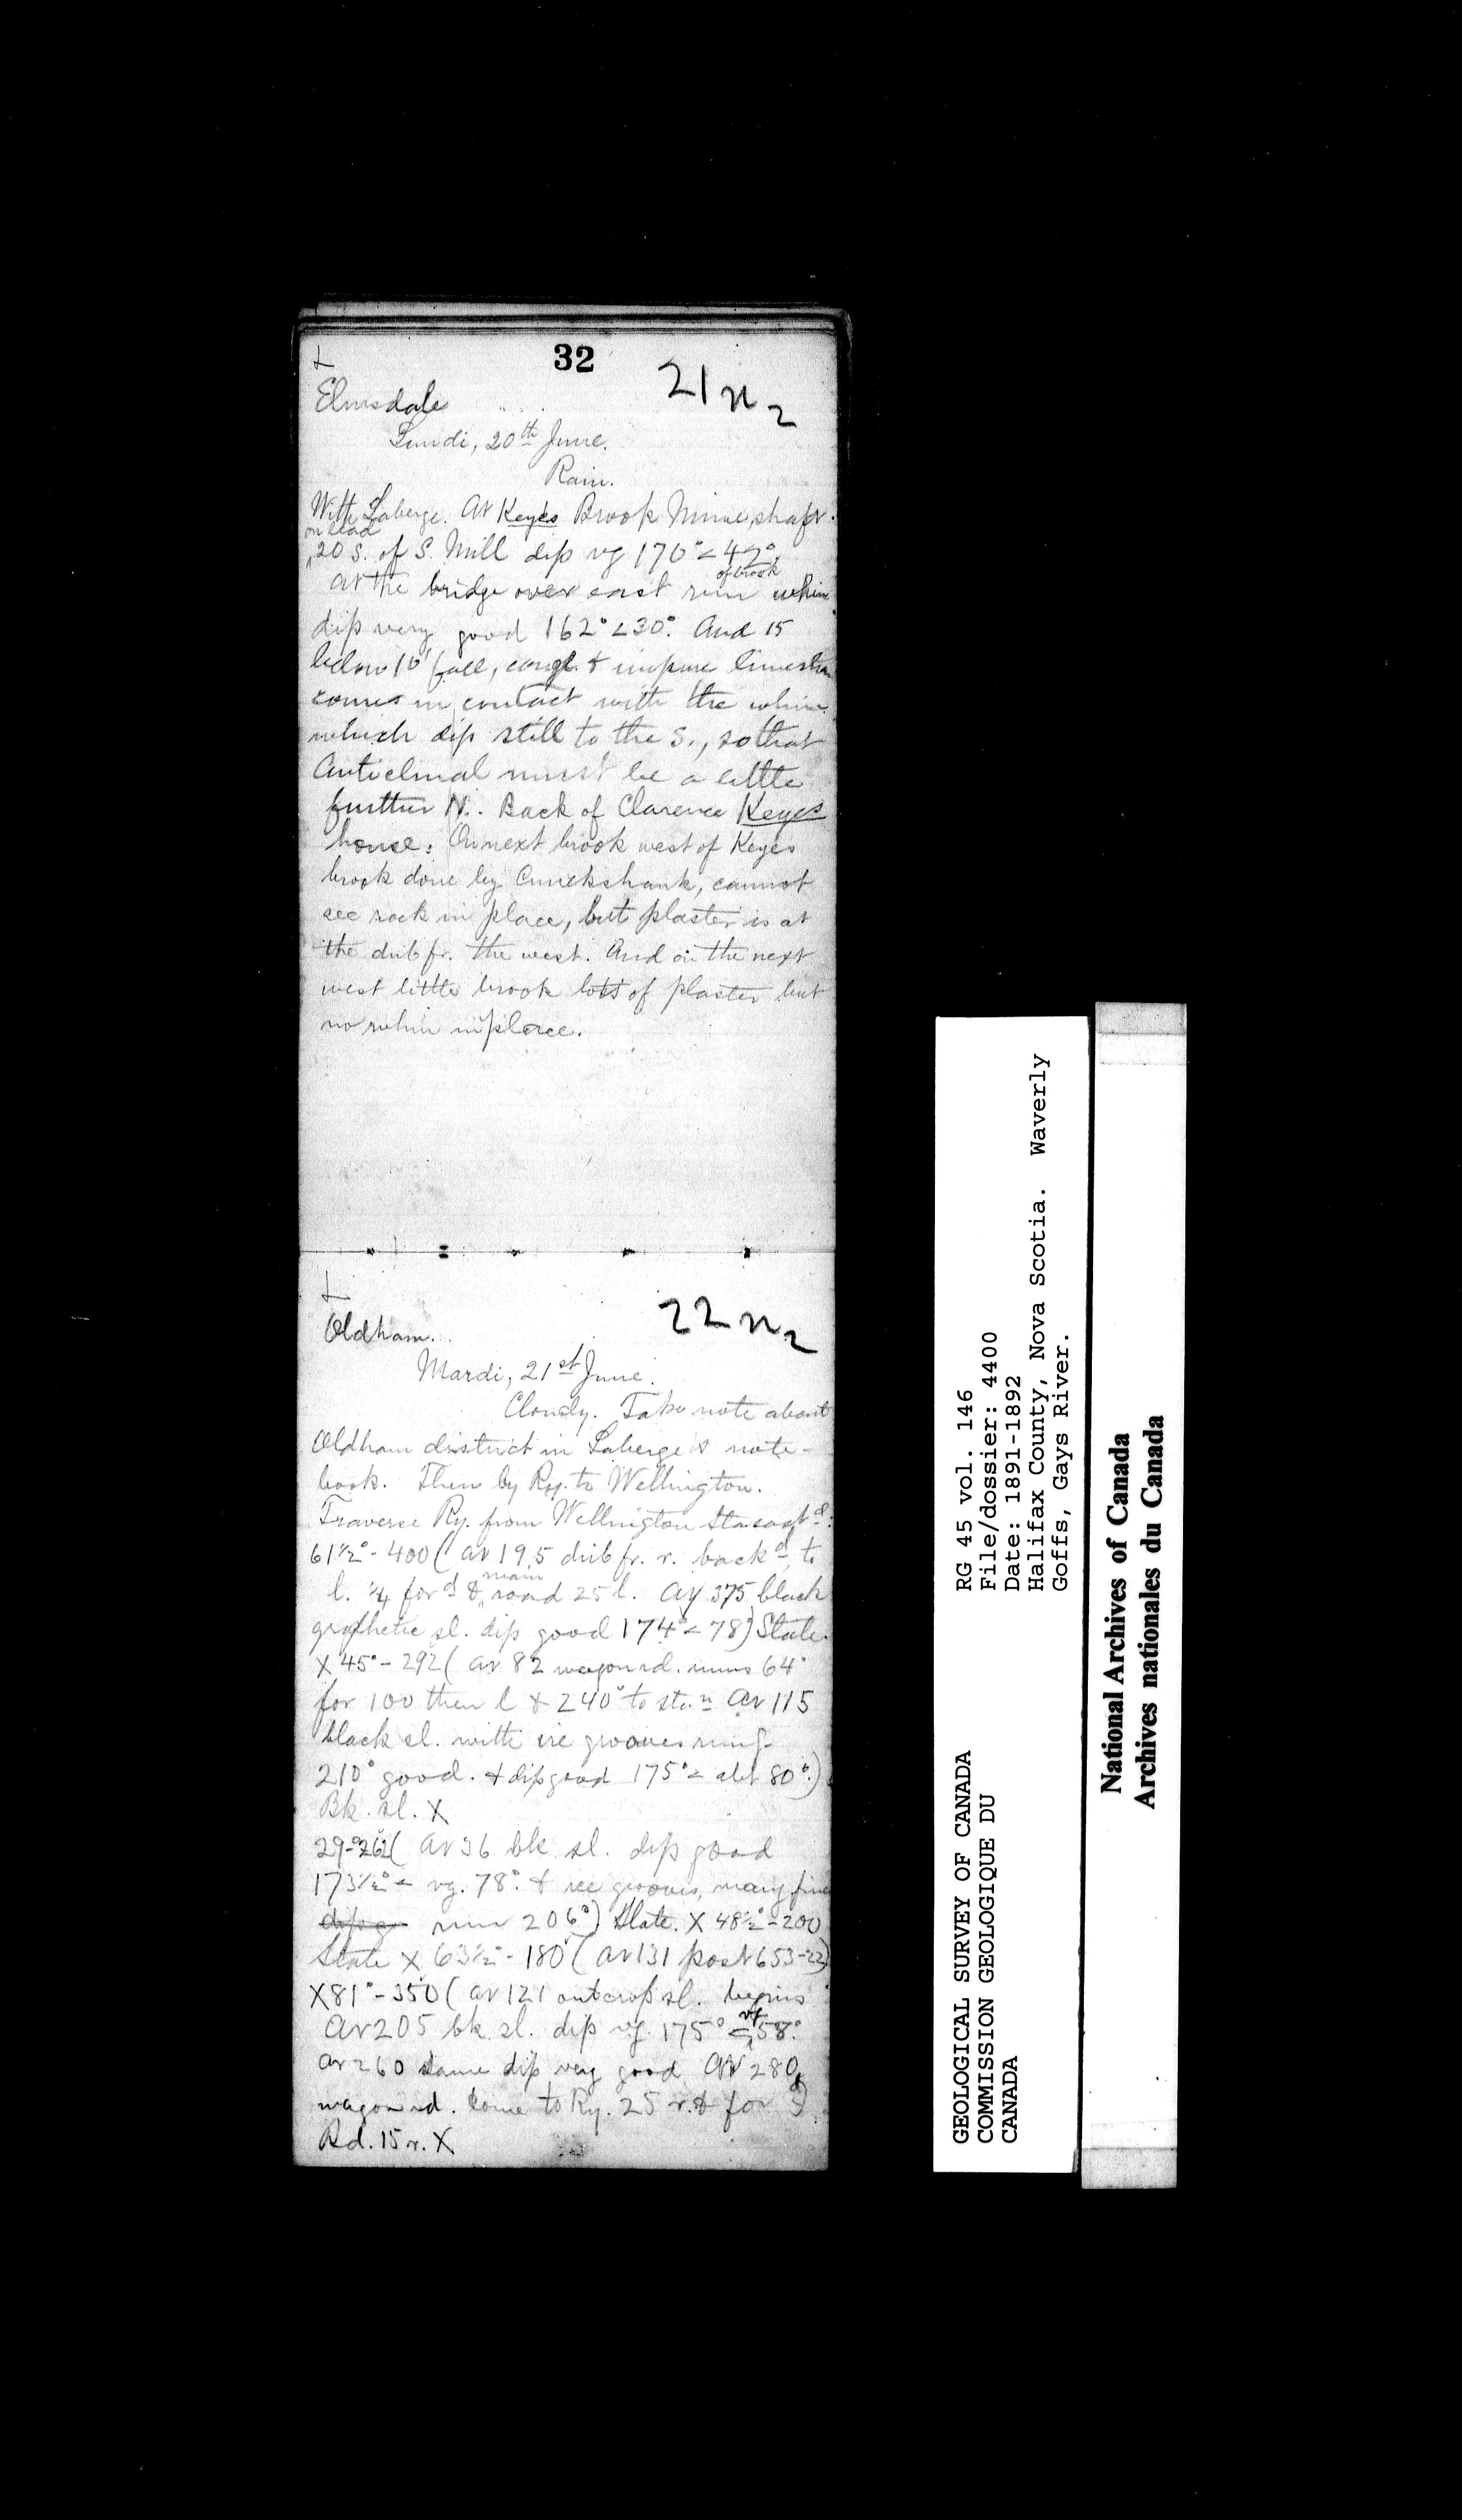 32
21 n 2
Elmsdale
Lundi, 20th June.
Rain.
With Laberge. At Keyes Brook Mine, shaft
on lead
20 S. of S. Mill dip vg 170° < 42°.
of brook
at the bridge over east run whin
dip very good 162° < 30°. And 15
below 10' fall, congl. & impure limeston
comes in contact with the whin
which dip still to the S., so that
Anticlinal must be a little
further N. Back of Clarence Keyes
house: On next brook west of Keyes
brook done by Cruickshank, cannot
see rock in place, but plaster is at
the drib fr. the west. And on the next
west little brook lots of plaster but
no whin in place.
22 n 2
Oldham.
Mardi, 21st June.
Cloudy. Take note about
Oldham district in Laberge's note-
book. Then by Ry. to Wellington.
Traverse Ry. from Wellington Sta east d:
61½° - 400 ( at 19.5 drib fr. r. back d, to
main
l. ¼ for d & road 25 l. At 375 black
grafhetic sl. dip good 174° < 78°) Slate.
X 45° - 292 ( at 82 wagon rd. runs 64°
for 100 then l & 240° to sta.n At 115
black sl. with ice grooves rung
210° good. & dip good 175° < abt 80°.)
Bk. sl. X
29° - 262 ( at 36 bk sl. dip good
173½° < vg. 78°. & ice grooves, many fine
run 206°) Slate. X 48½° - 200
Slate X 63½° - 180 ( at 131 post 653-22)
X 81° - 350 ( at 121 outcrop sl. begins
At 205 bk. sl. dip vg. 175° < vg 58°.
at 260 same dip very good At 280,
wagon rd. come to Ry. 25 r. & for d)
Rd. 15 r. X
GEOLOGICAL SURVEY OF CANADA
COMMISSION GEOLOGIQUE DU
CANADA
RG 45 vol. 146
File/dossier: 4400
Date: 1891-1892
Halifax County, Nova Scotia. Waverly
Goffs, Gays River.
National Archives of Canada
Archives nationales du Canada